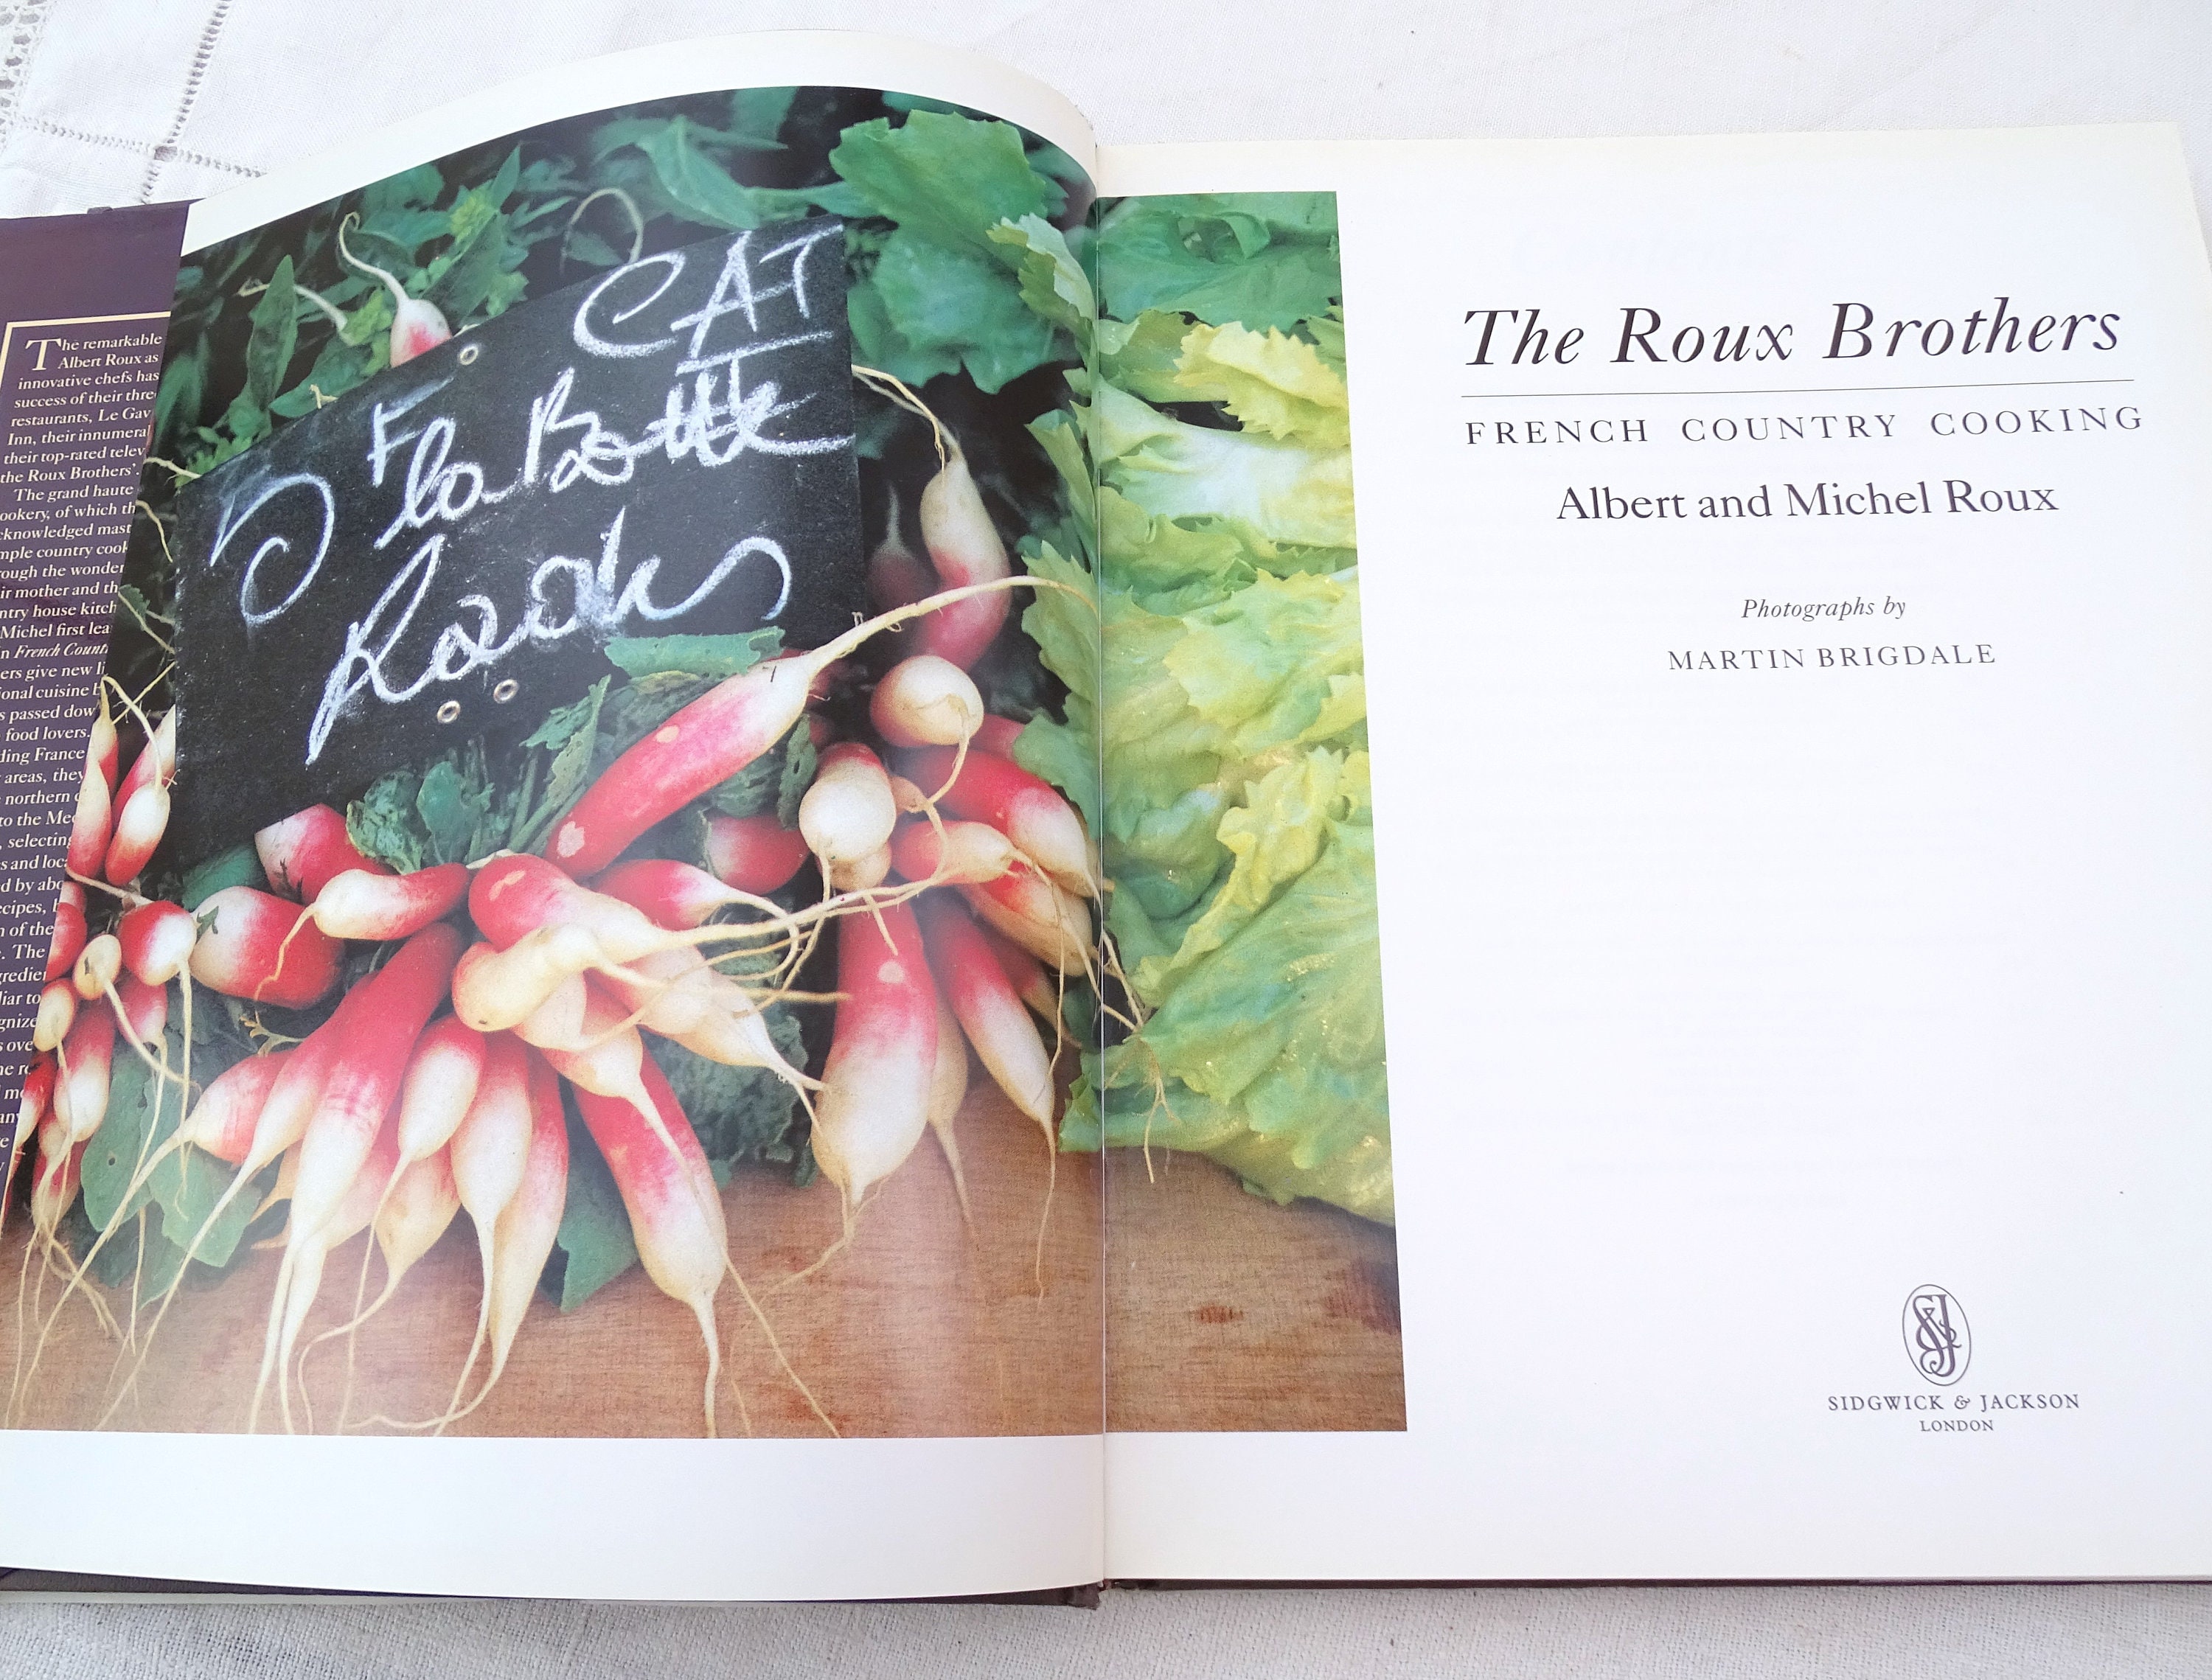 The remarkable
Albert Roux as
innovative chefs has
success of their thre
restaurants, Le Gav
Inn, their innumeral
their top-rated telev
the Roux Brothers'.
The grand haute
ookery, of which th
cknowledged mast
mple country cook
rough the wonder
ir mother and th
ntry house kitch
Michel first lea
n French Count
ers give new li
ional cuisine b
s passed dow
food lovers.
ding France
areas, they
northern
to the Me
, selecting
s and loca
d by abo
ecipes,
n of the
. The
gredien
liar to
gnize
s ove
CAT
5 F la Botte
The Roux Brothers
FRENCH COUNTRY COOKING
Albert and Michel Roux
Photographs by
MARTIN BRIGDALE
SJ
SIDGWICK & JACKSON
LONDON